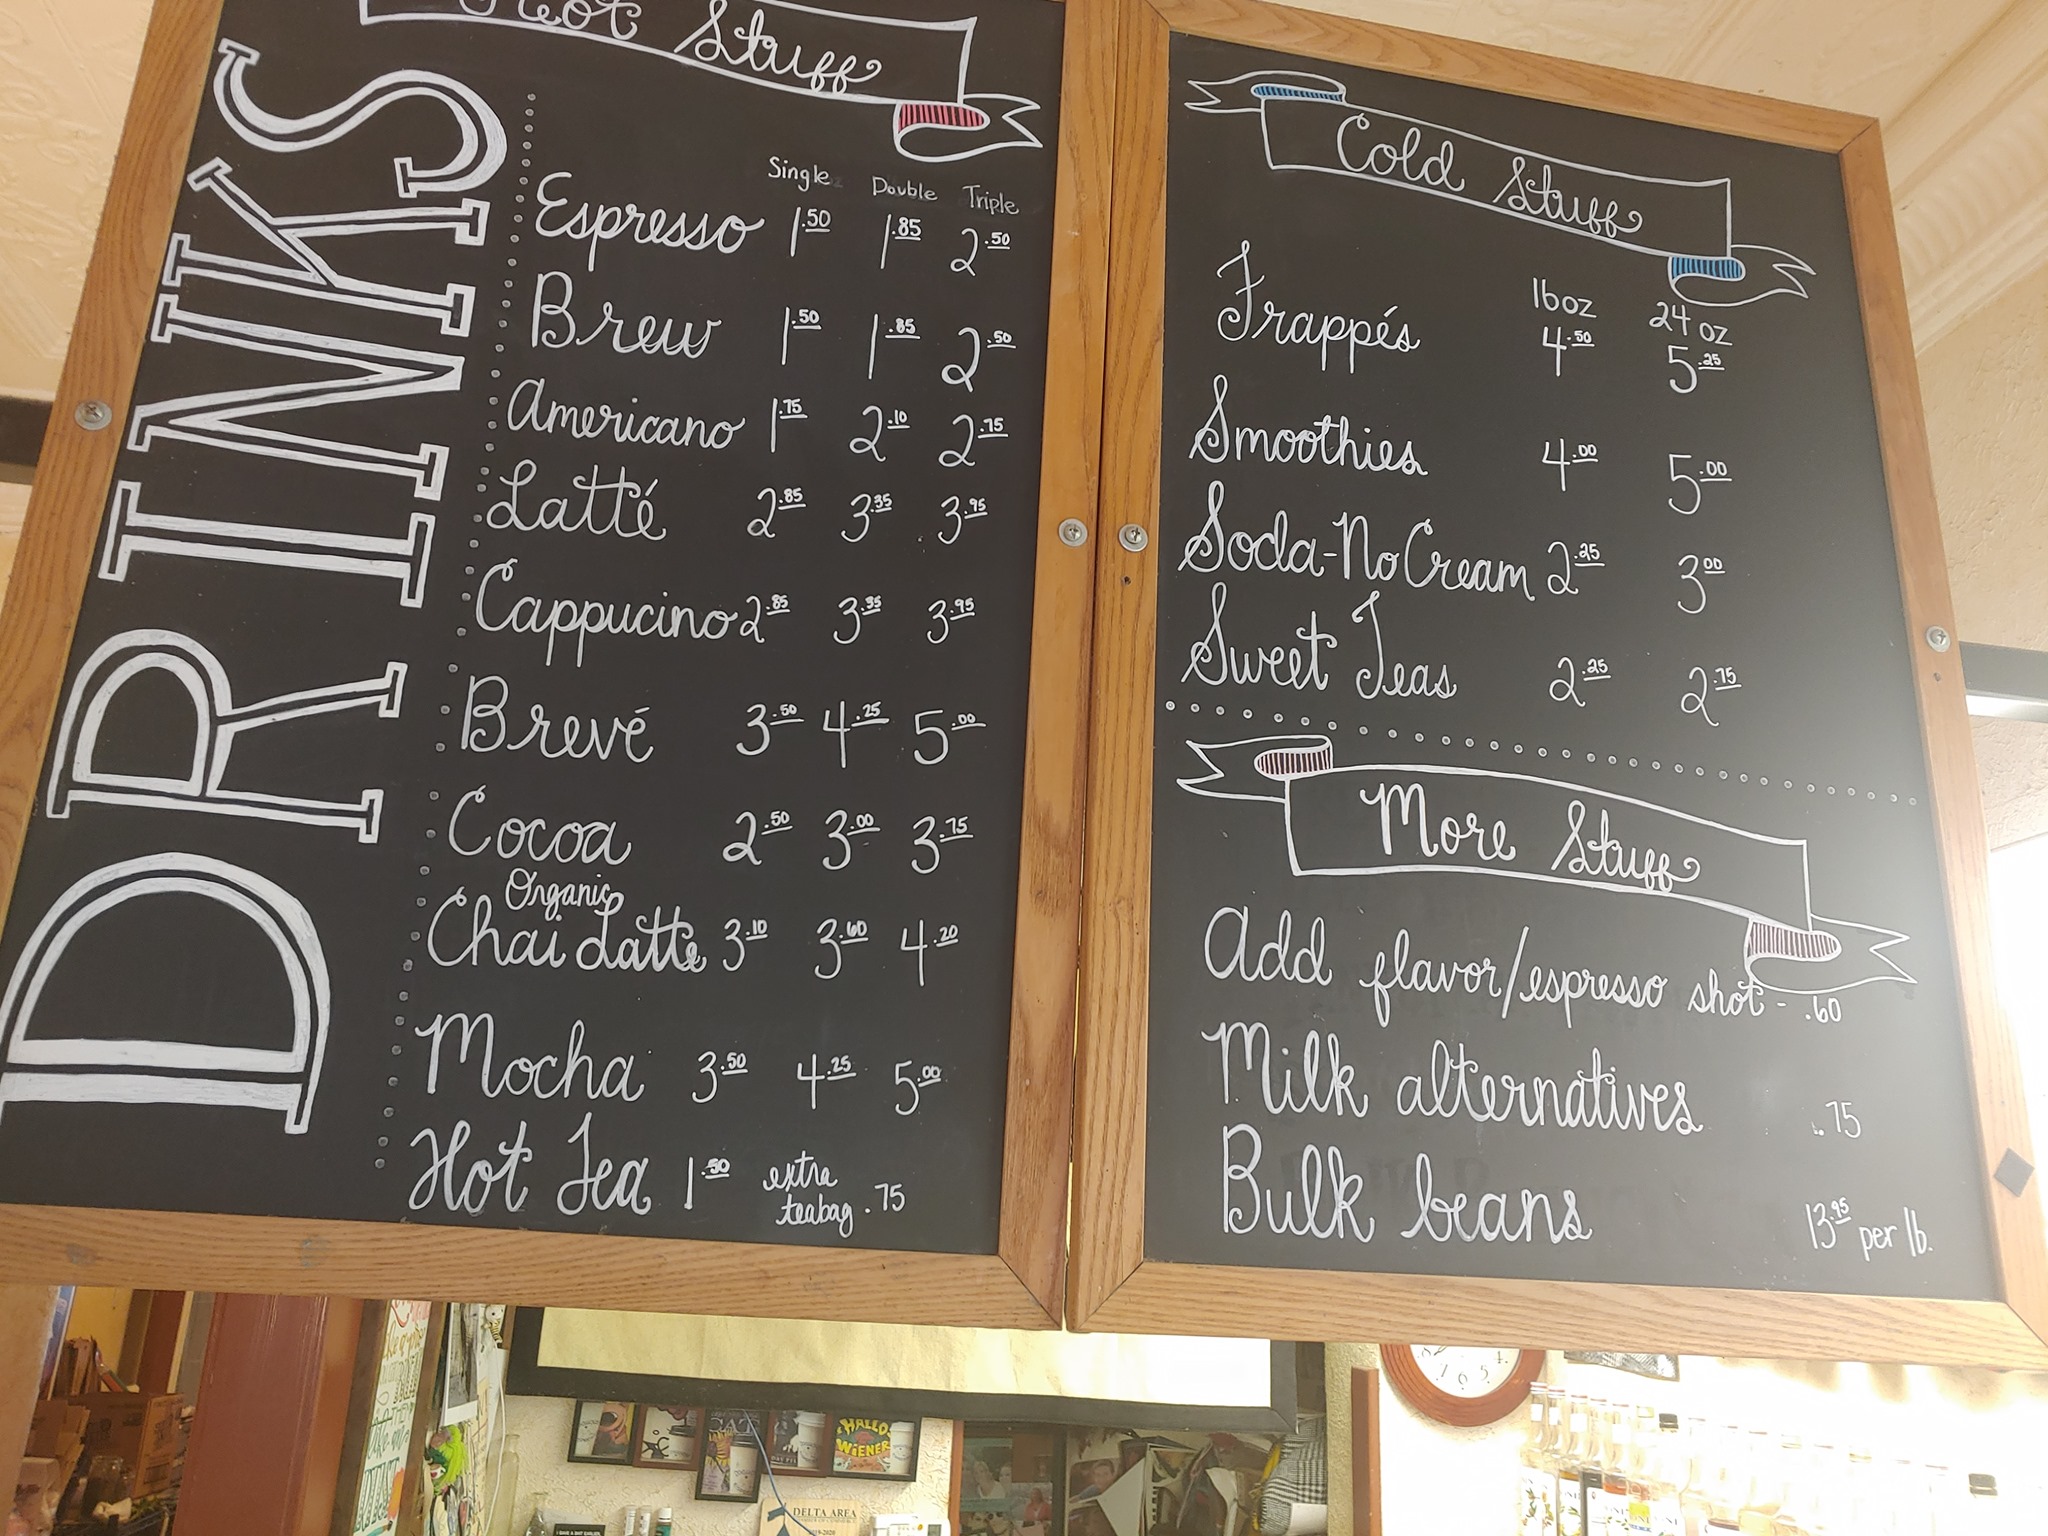 Hot Stuff
DRINKS
Single Double Triple
Espresso 1.50 1.85 2.50
Brew 1.50 1.85 2.50
Americano 1.75 2.10 2.75
Latté 2.85 3.35 3.95
Cappucino 2.85 3.35 3.95
Brevé 3.50 4.25 5.00
Cocoa 2.50 3.00 3.75
Organic
Chai Latte 3.10 3.60 4.20
Mocha 3.50 4.25 5.00
Hot Tea 1.50 extra
teabag .75
Cold Stuff
16oz 24 oz
Frappés 4.50 5.25
Smoothies 4.00 5.00
Soda-No Cream 2.25 3.00
Sweet Teas 2.25 2.75
More Stuff
Add flavor/espresso shot - .60
Milk alternatives .75
Bulk beans 13.95 per lb.
HALLO
WIENER
DELTA AREA
2019-2020
7 6 5 4